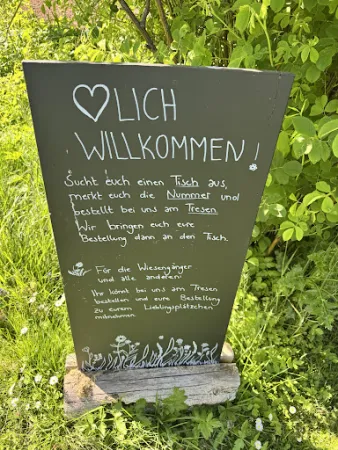 ♡LICH
WILLKOMMEN!
Sucht euch einen Tisch aus,
merkt euch die Nummer und
bestellt bei uns am Tresen.
Wir bringen euch eure
Bestellung dann an den Tisch.
Für die Wiesengänger
und alle anderen:
Ihr könnt bei uns am Tresen
bestellen und eure Bestellung
zu eurem Lieblingsplätzchen
mitnehmen.